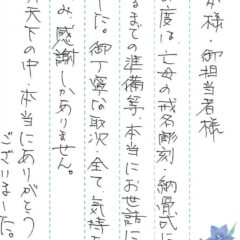 本様・御担当者様
の度は亡母の戒名彫刻・納骨に
るまでの準備等、本当にお世話に
した。御丁寧な取次、全て、気持
み感謝しかありません。
天下の中、本当にありがとう
ございました。